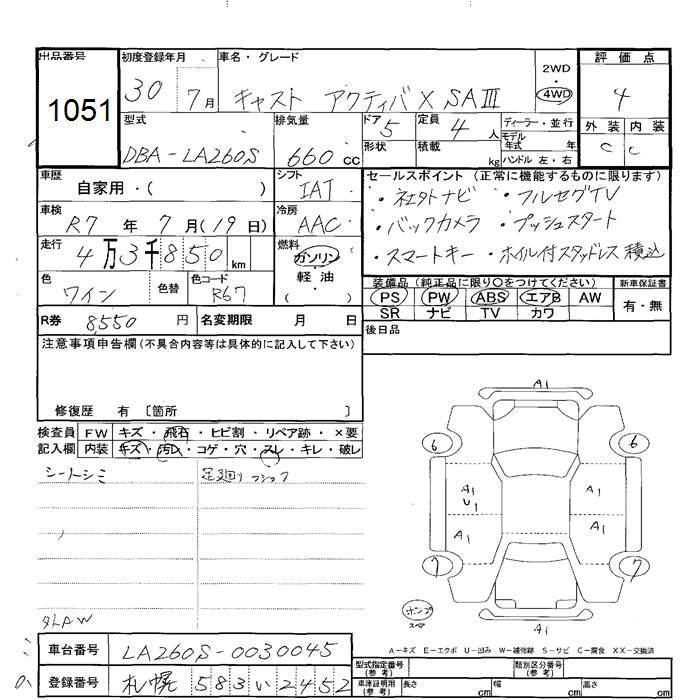 出品番号 初度登録年月 車名・グレード 2WD・4WD 評価点
1051 30 7月 キャスト アクティバX SAⅢ 4
型式 排気量 ドア 5 定員 4人 ディーラー・並行 外装 内装
DBA-LA260S 660cc 形状 積載 kg モデル年式 年 ハンドル 左・右 C C
車歴 自家用・( ) シフト IAT セールスポイント (正常に機能するものに限ります)
・社外ナビ ・フルセグTV
車検 R7年 7月(19日) 冷房 AAC ・バックカメラ ・プッシュスタート
走行 4万3千850km 燃料 ガソリン・軽油・( ) ・スマートキー ・ホイル付スタッドレス積込
色 ワイン 色替 色コード R67 装備品(純正品に限り〇をつけてください) 新車保証書
PS PW ABS エアB AW 有・無
SR ナビ TV カワ
R券 8,550円 名変期限 月 日 後日品
注意事項申告欄(不具合内容等は具体的に記入して下さい)
修復歴 有 [箇所 ]
検査員 FW キズ・飛石・ヒビ割・リペア跡・×要
記入欄 内装 キズ・汚レ・コゲ・穴・スレ・キレ・破レ
シートシミ 足廻り
A1
6 6
A1 U1 A1
A1 A1
7 7
ポンプ
A1
A-キズ E-エクボ U-凹み W-補修跡 S-サビ C-腐食 XX-交換済
車台番号 LA260S-0030045 型式指定番号(参考) 類別区分番号(参考)
登録番号 札幌 583 い 2452 車庫証明用(参考) 長さ cm 幅 cm 高さ cm